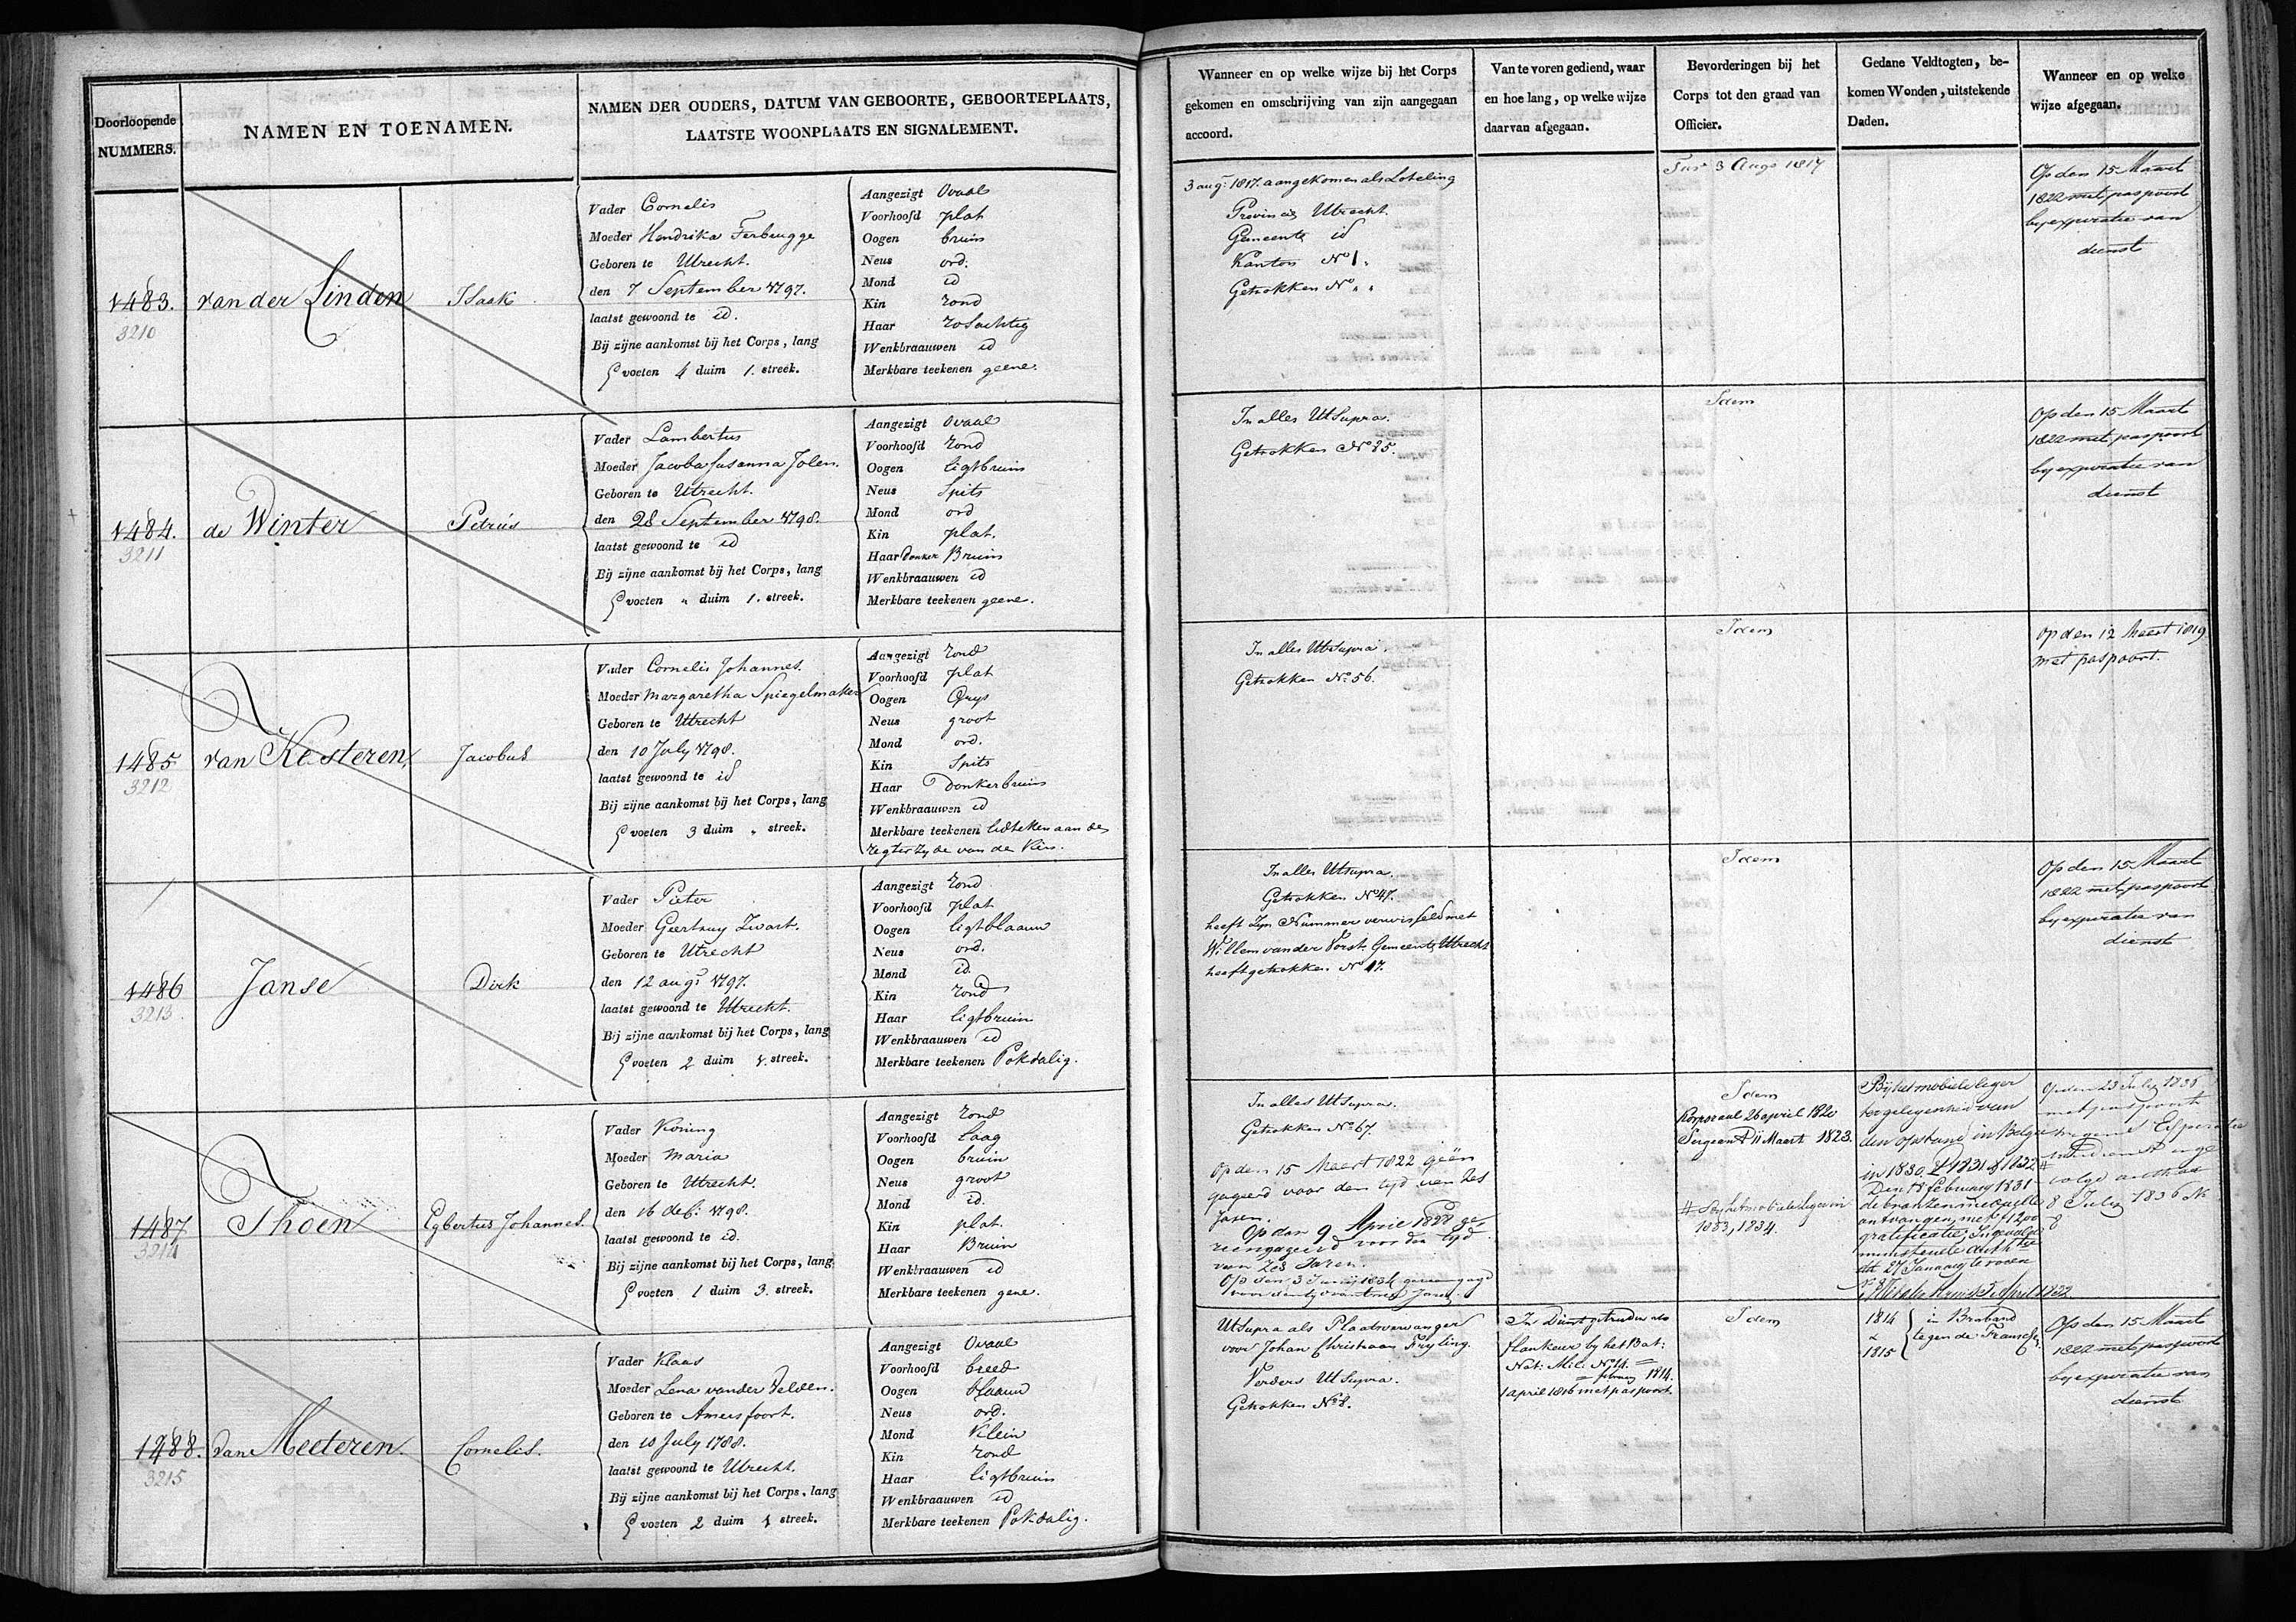 Doorloopende
NUMMERS.
NAMEN EN TOENAMEN.
NAMEN DER OUDERS, DATUM VAN GEBOORTE, GEBOORTEPLAATS,
LAATSTE WOONPLAATS EN SIGNALEMENT.
Wanneer en op welke wijze bij het Corps
gekomen en omschrijving van zijn aangegaan
accoord.
Van te voren gediend, waar
en hoe lang, op welke wijze
daarvan afgegaan.
Bevorderingen bij het
Corps tot den graad van
Officier.
Gedane Veldtogten, be-
komen Wonden, uitstekende
Daden.
Wanneer en op welke
wijze afgegaan.
1483.
3210
van der Linden
Isaak
Vader Cornelis
Moeder Hendrika Terbrugge
Geboren te Utrecht.
den 7 September 1797.
laatst gewoond te id.
Bij zijne aankomst bij het Corps, lang
5 voeten 4 duim 1. streek.
Aangezigt Ovaal
Voorhoofd plat
Oogen bruin
Neus ord.
Mond id
Kin rond
Haar rosachtig
Wenkbraauwen id
Merkbare teekenen geene.
3 augs 1817. aangekomen als Loteling
Provincie Utrecht.
Gemeente id
Kanton No 1.
Getrokken No " "
3 Augs 1817
Op den 15 Maart
1822 met paspoort
by expiratie van
dienst
1484.
3211
de Winter
Petrus
Vader Lambertus
Moeder Jacoba Susanna Jolen.
Geboren te Utrecht.
den 28 September 1798.
laatst gewoond te id
Bij zijne aankomst bij het Corps, lang
5 voeten " duim 1. streek.
Aangezigt Ovaal
Voorhoofd rond
Oogen ligtbruin
Neus Spits
Mond ord
Kin plat.
Haar donker Bruin
Wenkbraauwen id
Merkbare teekenen geene.
In alles Ut Supra.
Getrokken No 85.
Idem
Op den 15 Maart
1822 met paspoort
by expiratie van
dienst
1485
3212
van Kesteren
Jacobus
Vader Cornelis Johannes.
Moeder Margaretha Spiegelmaker
Geboren te Utrecht
den 10 July 1798.
laatst gewoond te id
Bij zijne aankomst bij het Corps, lang
5 voeten 3 duim " streek.
Aangezigt rond
Voorhoofd plat
Oogen Grys
Neus groot
Mond ord.
Kin Spits
Haar Donkerbruin
Wenkbraauwen id
Merkbare teekenen lidteken aan de
regter zyde van de Kin.
In alles Ut Supra.
Getrokken No 56.
Idem
Op den 12 Meert 1819
met paspoort.
1486
3213
Janse
Dirk
Vader Pieter
Moeder Geertruy Zwart.
Geboren te Utrecht
den 12 augs 1797.
laatst gewoond te Utrecht.
Bij zijne aankomst bij het Corps, lang
5 voeten 2 duim 1. streek.
Aangezigt rond
Voorhoofd plat
Oogen ligtblaauw
Neus ord.
Mond id.
Kin rond
Haar ligtbruin
Wenkbraauwen id
Merkbare teekenen Pokdalig.
In alles Ut supra.
Getrokken No 47.
heeft zyn Nummer verwisseld met
Willem van der Vorst Gemeente Utrecht
heeft getrokken No 17.
Idem
Op den 15 Maart
1822 met paspoort
by expiratie van
dienst
1487
3214
Thoen
Egbertus Johannes.
Vader Koning
Moeder Maria
Geboren te Utrecht.
den 16 dec. 1798.
laatst gewoond te id.
Bij zijne aankomst bij het Corps, lang
5 voeten 1 duim 3. streek.
Aangezigt rond
Voorhoofd laag
Oogen bruin
Neus groot
Mond id.
Kin plat.
Haar Bruin
Wenkbraauwen id
Merkbare teekenen gene.
In alles Ut Supra.
Getrokken No 67.
Op den 15 Meert 1822 geën
gageerd voor den tyd van zes
Jaren.
Op den 9 April 1828 ge
reengageerd voor den tyd
van zes Jaren.
Idem
Korporaal 26 april 1820
Sergeant 11 Maart 1823.
# By het mobiele leger in
1833, 1834.
By het mobiele leger
ter gelegenheid van
den opstand in Belgie
in 1830, 1831 & 1832 #
Den 18 february 1831
de bronzen medaille
ontvangen, met f 12,00
gratificatie, Ingevolge
ministeriele auth
dd 27 January te voren
Op den 23 July 1836
met paspoort
wegens Expiratie
8 July 1836 N
8
1488.
3215
van Meeteren.
Cornelis.
Vader Klaas
Moeder Lena van der Velden.
Geboren te Amersfoort.
den 10 July 1788.
laatst gewoond te Utrecht.
Bij zijne aankomst bij het Corps, lang
5 voeten 2 duim 1 streek.
Aangezigt Ovaal
Voorhoofd breed
Oogen blaauw
Neus ord.
Mond Klein
Kin rond
Haar ligtbruin
Wenkbraauwen id
Merkbare teekenen Pokdalig.
Ut Supra als Plaatsvervanger
voor Johan Christiaan Fryling.
Verders Ut Supra.
Getrokken No 8.
In Dienst getreden als
flankeur by het Bat:
Nat: Mil: No 14.
february 1814.
1 april 1816 met paspoort
Idem
1814
&
1815
in Braband
tegen de Fransche
Op den 15 Maart
1822 met paspoort
by expiratie van
dienst